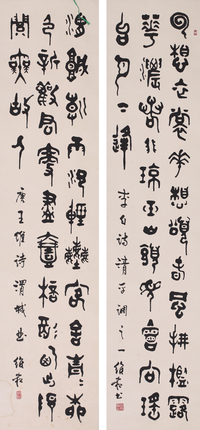 雲想衣裳花想容春風拂檻露
華濃若非群玉山頭見會向瑤
台月下逢 李白诗清平調之一
渭城朝雨浥輕塵客舍青青柳
色新勸君更盡一杯酒西出陽
關無故人 唐王維诗渭城曲